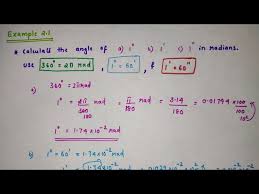 Example 2.1
* Calculate the angle of a) 1° b) 1' c) 1" in radians.
use 360° = 2π rad , 1° = 60' , & 1' = 60"
a) 360° = 2π rad
1° = 2π/360 rad = π/180 rad = 3.14/180 = 0.01744 × 100/100
1° = 1.74 × 10⁻² rad
b) 1° = 60' = 1.74 × 10⁻² rad